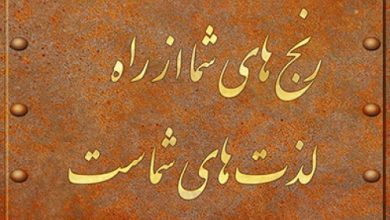 رنج های شما از راه
لذت های شماست